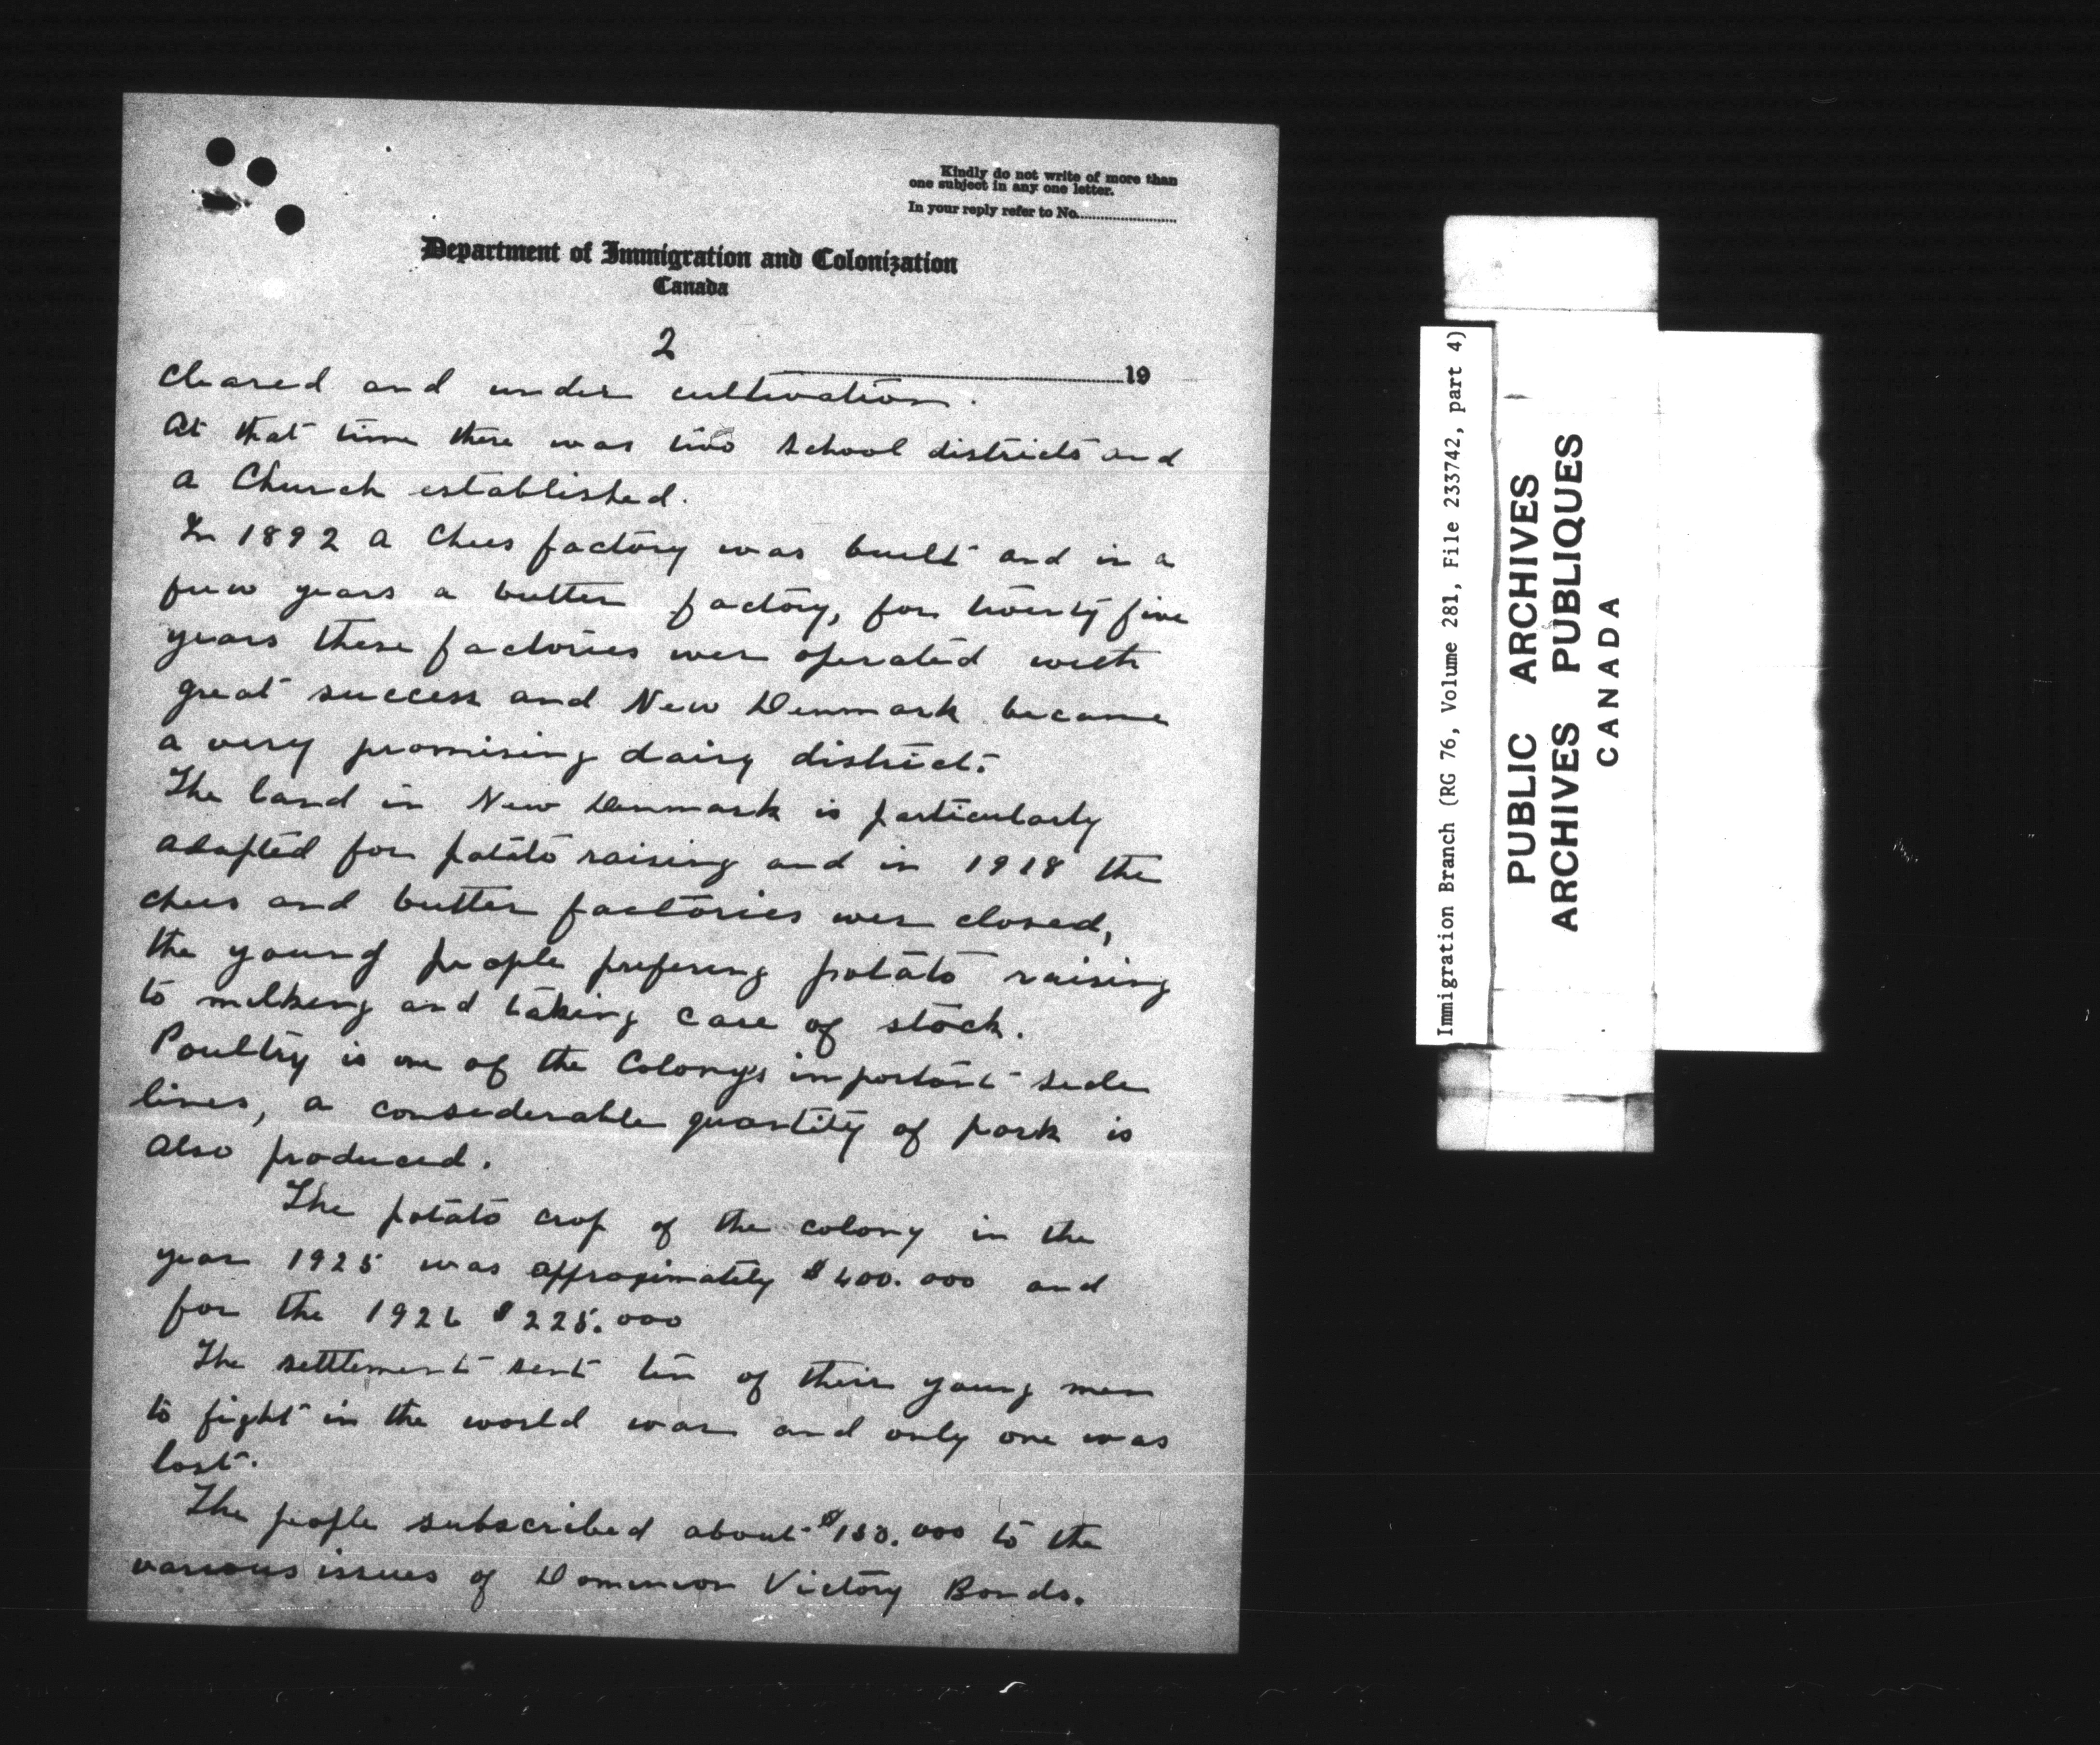 Kindly do not write of more than
one subject in any one letter.
In your reply refer to No.
Department of Immigration and Colonization
Canada
2
19
Cleared and under cultivation.
At that time there was two School districts and
a Church established.
In 1892 a Chees factory was built and in a
few years a butter factory, for twenty five
years these factories wer operated with
great success and New Denmark became
a very promising dairy district.
The land in New Denmark is particularly
adapted for potato raising and in 1918 the
chees and butter factories wer closed,
the young people prefering potato raising
to milking and taking care of stock.
Poultry is one of the Colony's important side
lines, a considerable quantity of pork is
also produced.
The potato crop of the colony in the
year 1925 was approximately $400.000 and
for the 1926 $225.000
The settlement sent ten of their young men
to fight in the world war and only one was
lost.
The people subscribed about to the
various issues of Dominion Victory Bonds.
Immigration Branch (RG 76, Volume 281, File 233742, part 4)
PUBLIC ARCHIVES
ARCHIVES PUBLIQUES
CANADA